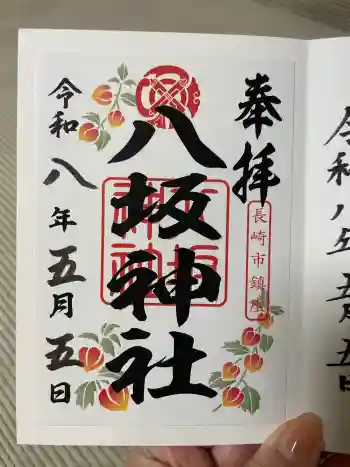 奉拝
長崎市鎮座
八坂神社
令和八年五月五日
令和八年五月五日